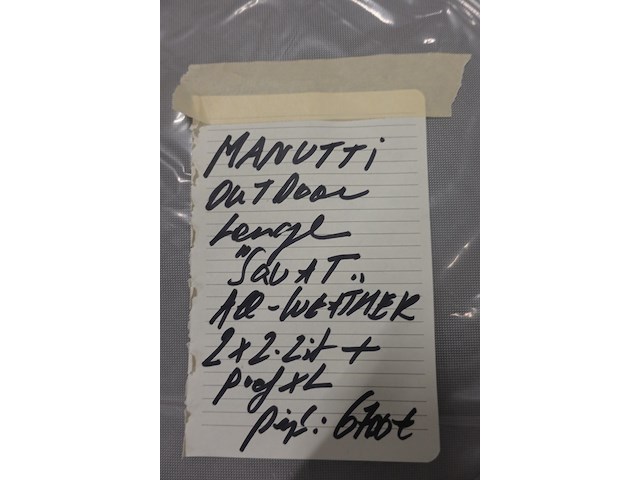 MANUTTi
OUTDoor
Lounge
"SQUAT"
All-WEATHER
2x2.zit +
poef XL